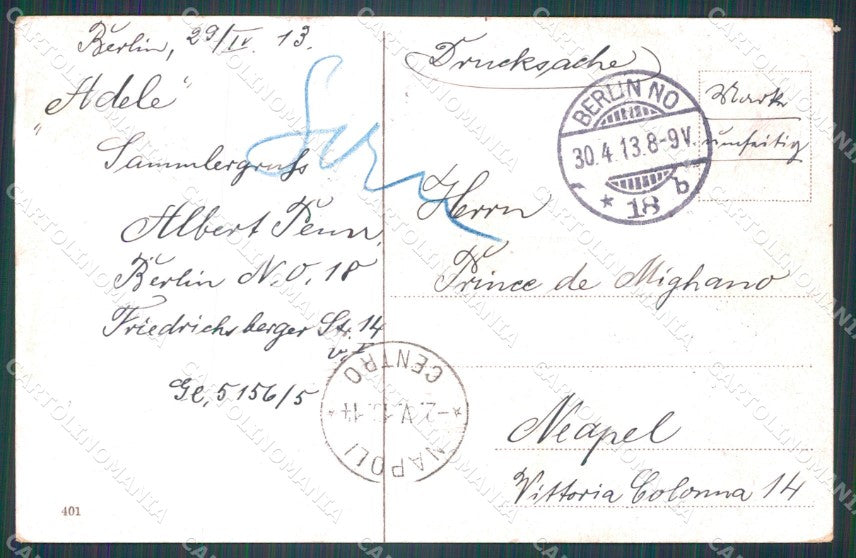 Berlin, 29/IV. 13.
"Adele"
Sammlergruß
Albert Penn,
Berlin N.O. 18
Friedrichsberger Str. 14
v. I
Gl, 5156/5
401
Drucksache
Marke
umseitig
BERLIN NO
30.4.13.8-9V.
* 18 b
Herrn
Prince de Mighano
Neapel
Vittoria Colonna 14
NAPOLI
CENTRO
CARTOLINOMANIA